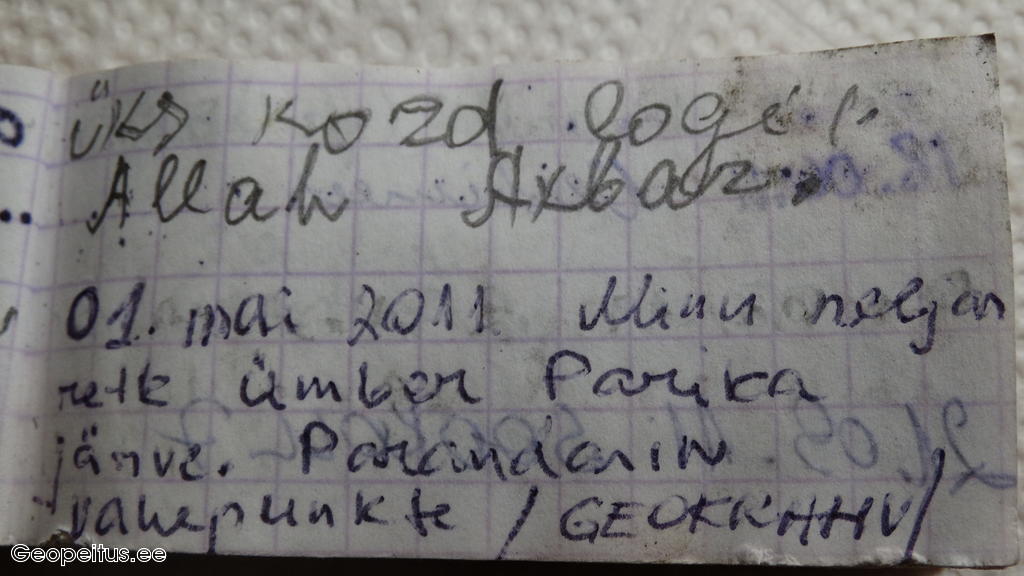 üks kord logi
Allah Akbar.
01. mai 2011 Minu neljas
retk ümber Parika
järve. Parandasin
vahepunkte / GEOKRAHHV/
Geopeitus.ee